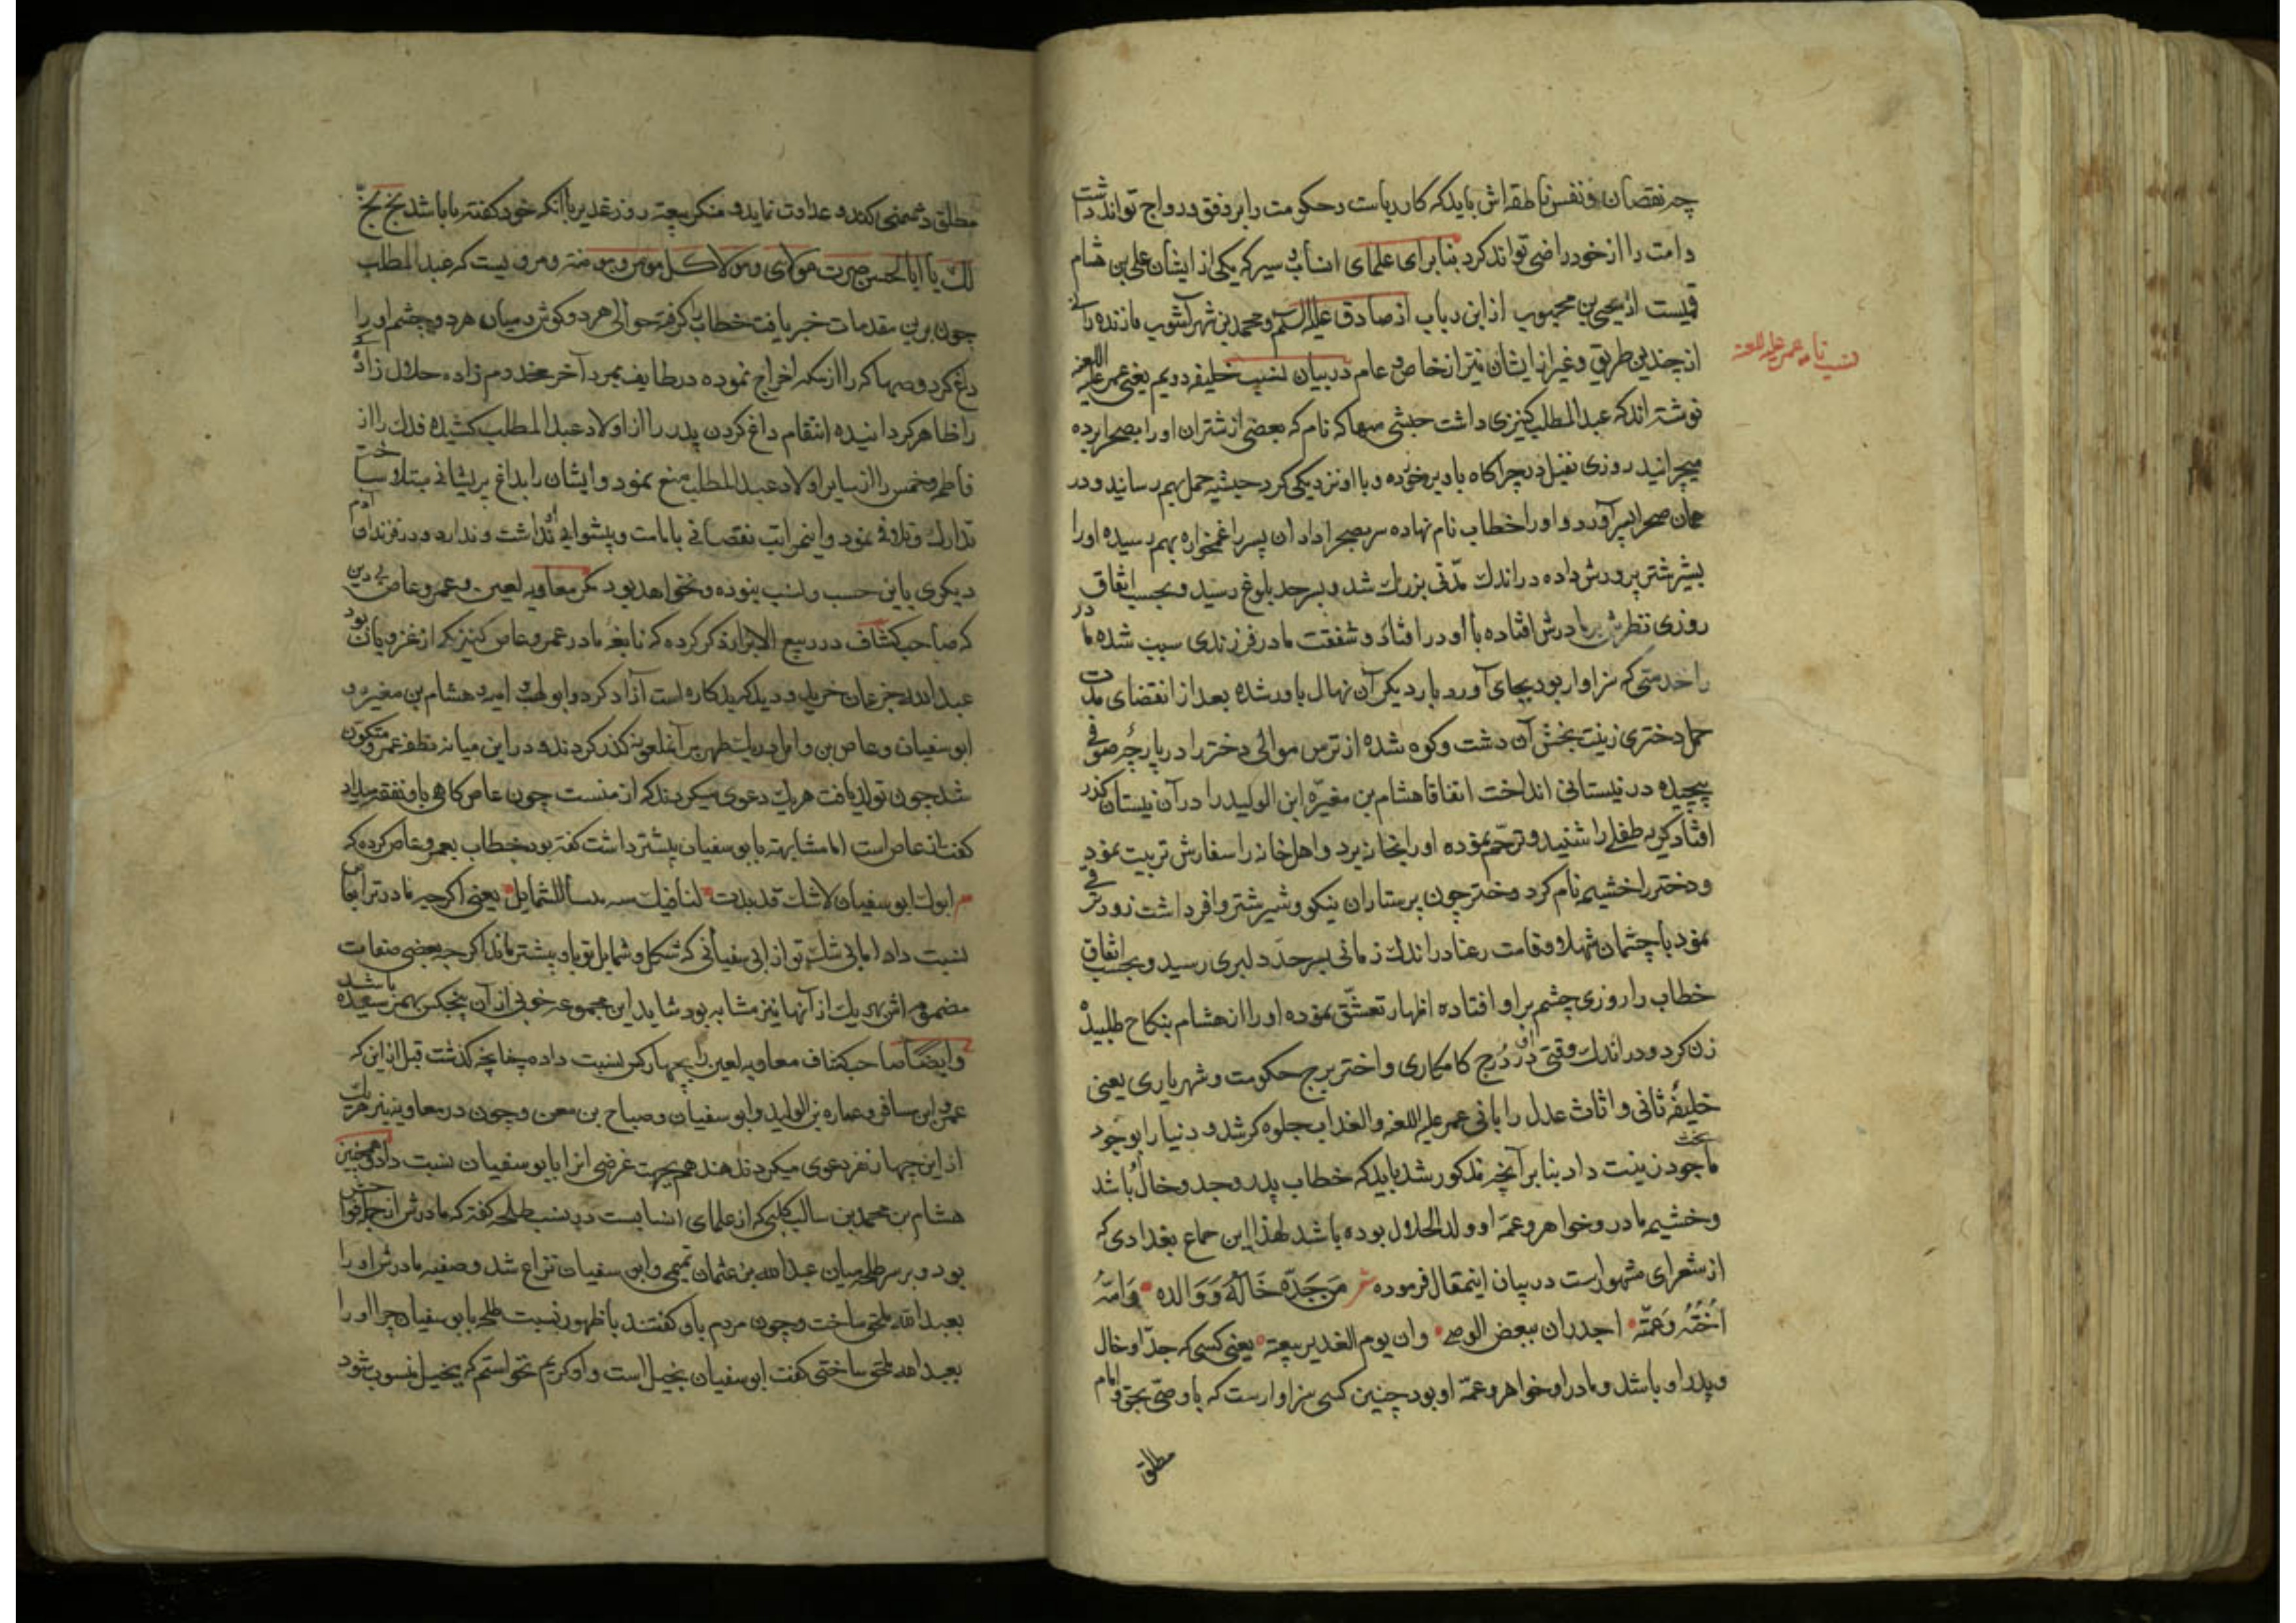 چه نقصان و نفس ناطقه‌اش باید که کار ریاست و حکومت را بر وفق و رواج تواند داشت
و امت را از خود راضی تواند کرد بنابرای علمای انساب و سیر که یکی از ایشان علی بن هشام
قمیست از یحیی بن محبوب از ابن دیاب از صادق علیه السلم و محمد بن شهرآشوب مازندرانی
نسب نامه عمر علیه اللعنه
از چندین طریق و غیر از ایشان نیز از خاص و عام در بیان نسب خلیفه دویم یعنی عمر علیه اللعنه
نوشته اند که عبدالمطلب کنیزی داشت حبشی صهاکه نام که بعضی از شتران او را بصحرا برده
میچرانید روزی نفیل در چراکاه باو برخورده و با او نزدیکی کرد حبشیه حمل بهم رسانید و در
همان صحرا پسر آورد و او را خطاب نام نهاده سر بصحرا داد آن پسر را غمخواره بهم رسیده او را
بشیر شتر پرورش داده در اندک مدتی بزرک شد و بسر حد بلوغ رسید و بحسب اتفاق
روزی نظرش بر مادرش افتاده با او در افتاد و شفقت مادر فرزندی سبب شده مادر
را خدمتی که سزاوار بود بجای آورد بار دیکر آن نهال باور شده بعد از انقضای مدت
حمل دختری زینت بخش آن دشت و کوه شده از ترس موالی دختر را در پارچهٔ صوفی
پیچیده در نیستانی انداخت اتفاقا هشام بن مغیره ابن الولید را در آن نیستان کذر
افتاد کریه طفلی را شنید و ترحم نموده او را بخانه برد و اهل خانه را سفارش تربیت نمود
و دختر را خشیمه نام کرد دختر چون پرستاران نیکو و شیر شتر وافر داشت زود ترقی
نمود با چشمان شهلا و قامت رعنا در اندک زمانی بسر حد دلبری رسید و بحسب اتفاق
خطاب را روزی چشم بر او افتاده اظهار تعشق نموده او را از هشام بنکاح طلبیده
زن کرد و در اندک وقتی آن در درج کامکاری و اختر برج حکومت و شهریاری یعنی
خلیفهٔ ثانی و اثاث عدل را بانی عمر علیه اللعنه و العذاب جلوه کر شد و دنیا را بوجود
ماجود زینت داد بنا بر آنچه مذکور شد باید که خطاب پدر و جد و خال باشد
و خشیمه مادر و خواهر و عمه او ولد الحلال بوده باشد لهذا ابن حماع بغدادی که
از شعرای مشهور است در بیان اینمقال فرموده شعر مَن جَدّه خَالُهُ وَوَالده وَامّهُ
اُختُهُ وَعَمّته اجدر ان یبغض الوصی وان یوم الغدیر بیعته یعنی کسی که جد او خال
و پدر او باشد و مادر او خواهر و عمه او بود چنین کسی سزاوار است که با وصی بحق و امام
مطلق
مطلق دشمنی کند و عداوت نماید و منکر بیعت روز غدیر با آنکه خود کفته با باشد بخ بخ
لک یا ابا الحسن صرت مولای و مولا کل مومن و مومنه و مرویست که عبدالمطلب
چون برین مقدمات خبر یافت خطاب را کرفته حوالی هر دو کوش و میان هر دو چشم او را
داغ کرد و صهاکه را از مکه اخراج نموده در طایف بمرد آخر مخدوم زاده حلال زادگی
را ظاهر کردانیده انتقام داغ کردن پدر را از اولاد عبدالمطلب کشیده فدک را از
فاطمه و خمس را از سایر اولاد عبدالمطلب منع نمود و ایشان را بداغ پریشانی مبتلا ساخت
تدارک و تلافی نمود و اینمراتب نقصانی بامامت و پیشوایی او نداشت و ندارد و در فرزندان آدم
دیکری باین حسب و نسب نبوده و نخواهد بود مکر معاویه لعین و عمرو عاص بی دین
که صاحب کشاف در ربیع الابرار ذکر کرده که نابغه مادر عمرو عاص کنیزیکه از غزویان بود
عبدالله جزعان خرید و دید که بدکاره است آزاد کرد و ابولهب و امیه و هشام بن مغیره و
ابوسفیان و عاص بن وایل در یک طهر بر آنملعونه کذر کردند و در این میانه نطفه عمرو متکون
شد چون تولد یافت هر یک دعوی میکردند که از منست چون عاص کاهی باو نفقه میداد
کفت از عاص است اما مشابهت بابوسفیان بیشتر داشت کفته بود خطاب بعمرو عاص کرده که
ابوک ابوسفیان لاشک قد بدت لنا فیک الشمایل یعنی اکر چه مادر ترا بعاص
نسبت داد اما بی شک تو از ابی سفیانی که شکل و شمایل تو باو بیشتر ماند اکر چه بعضی صفات
بهر یک از آنها نیز مشابه بود شاید این مجموعه خوبی از آن پنجکس بهم رسیده باشد
وایضا صاحب کشاف معاویه لعین را بچهار کس نسبت داده چنانچه کذشت قبل از این که
عمرو ابن مسافر و عماره بن الولید و ابوسفیان و صباح بن معن و چون در معاویه نیز هر یک
از این چهار نفر دعوی میکردند هند هم بجهت غرضی انرا بابوسفیان نسبت داد و همچنین
هشام بن محمد بن سالب کلبی که از علمای انسابست در نسب طلحه کفته که مادرش از
بود و بر سر طلحه میان عبدالله بن عثمان تمیمی و ابن سفیان نزاع شد و صفیه مادرش او را
بعبدالله ملحق ساخت و چون مردم باو کفتند با ظهور نسبت طلحه بابوسفیان چرا او را
بعبدالله ملحق ساختی کفت ابوسفیان بخیل است و او کریم نخواستم که ببخیل منسوب شود